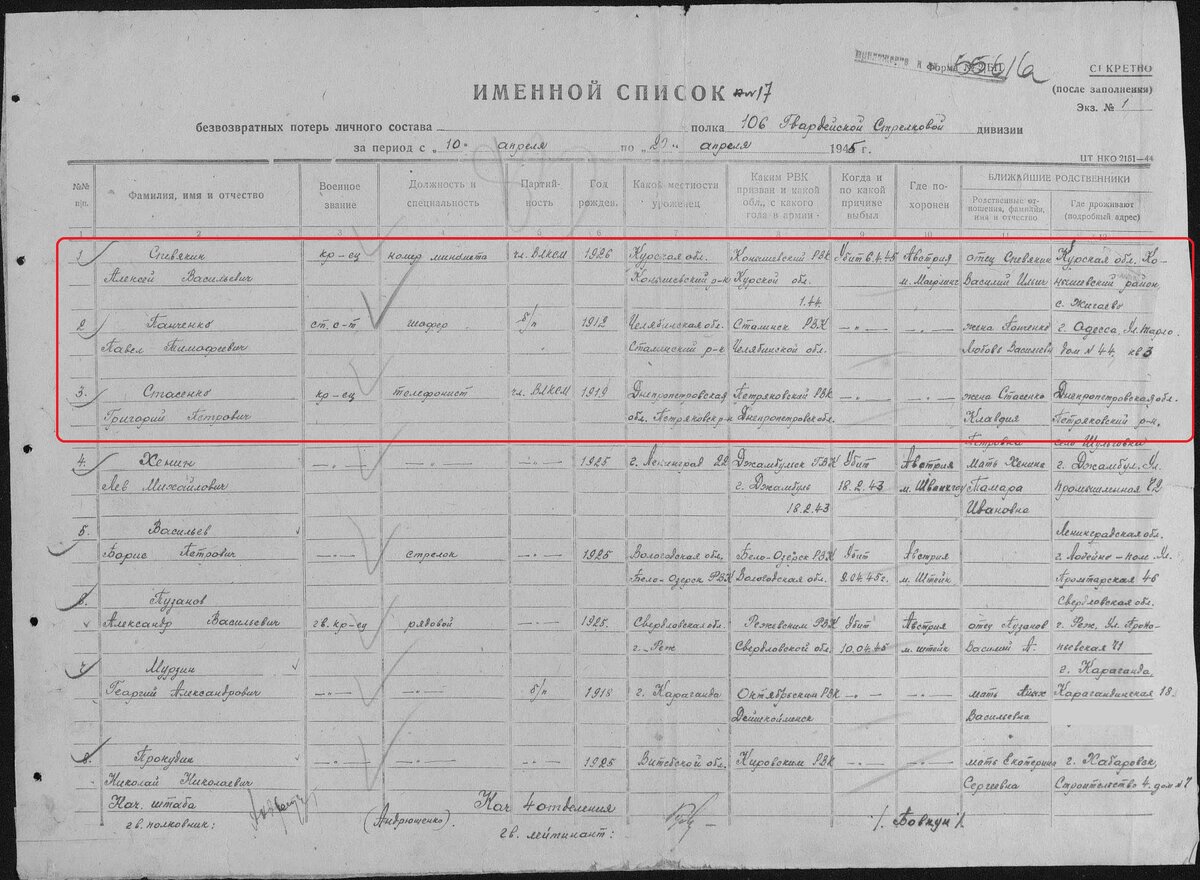 556/6а
Форма № 2БП
СЕКРЕТНО
(после заполнения)
Экз. № 1
ИМЕННОЙ СПИСОК № 17
безвозвратных потерь личного состава полка 106 Гвардейской Стрелковой дивизии
за период с „10“ апреля по „20“ апреля 1945 г.
ЦТ НКО 2151—44
№№ п/п. Фамилия, имя и отчество Военное звание Должность и специальность Партийность Год рожден. Какой местности уроженец Каким РВК призван и какой обл., с какого года в армии Когда и по какой причине выбыл Где похоронен БЛИЖАЙШИЕ РОДСТВЕННИКИ
Родственные отношения, фамилия, имя и отчество Где проживают (подробный адрес)
1 Спевякин кр-ец номер миномета чл. ВЛКСМ 1926 Курская обл. Конышевский РВК Убит 6.4.45 Австрия отец Спевякин Курская обл. Ко-
Алексей Васильевич Конышевский р-н Курской обл. м. Василий Ильич нышевский район
1.44. с. Жигаево
2 Панченко ст. с-т шофер б/п 1912 Челябинская обл. Сталинск РВК —„— —„— жена Панченко г. Одесса, Ул.
Павел Тимофеевич Сталинский р-н Челябинской обл. Любовь Василевн дом № 44, кв 3
3. Стасенко кр-ец телефонист чл. ВЛКСМ 1919 Днепропетровская Петряковский РВК —„— —„— жена Стасенко Днепропетровская обл.
Григорий Петрович обл. Петряковск р-н Днепропетровс обл. Клавдия Петряковский р-н.
Петровна село Шульговка
4. Хенин —„— —„— —„— 1925 г. Ленинград 22 Джамбулск ГВК Убит Австрия Мать Хенина г. Джамбул. Ул.
Лев Михайлович г. Джамбуль 18.2.43 м. Тамара промышленная 82
18.2.43 Ивановна
5. Васильев Ленинградская обл.
Борис Петрович —„— стрелок —„— 1925 Вологодская обл. Бело-Озерск РВК Убит Австрия г. Лодейно-поле Ул.
Бело-Озерск РВК Вологодская обл. 9.04.45г. м. Штейн 46
6. Пузанов Свердловская обл.
Александр Васильевич гв. кр-ец рядовой —„— 1925. Свердловская обл. Режевским РВК Убит Австрия отец Пузанов г. Реж, Ул.
г. Реж Свердловской обл. 10.04.45 м. штейн Василий А-
7 Мурзин г. Караганда
Георгий Александрович —„— —„— б/п 1918 г. Караганда Октябрьским РВК —„— —„— мать Карагандинская 18
Васильевна
8. Прокудин —„— —„— —„— 1925 Витебской обл. Кировским РВК —„— —„— мать Екатерина г. Хабаровск
Николай Николаевич Сергеевна Строительство 4. дом №7
Нач. штаба Нач 4 отделения
гв. полковник: (Андрющенко). гв. лейтинант: / Бовкун /